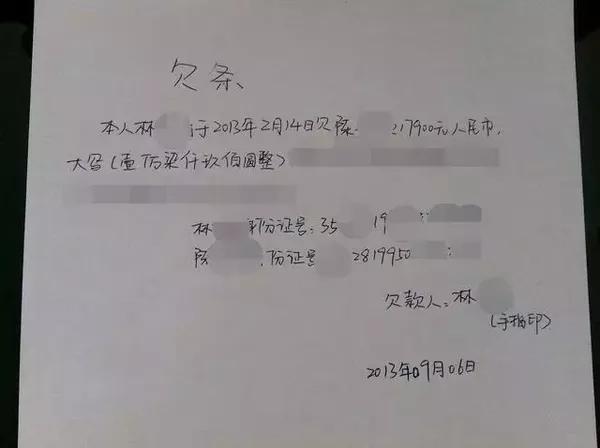 欠条
本人林 于2013年2月14日欠陈 :17900元人民币,
大写(壹仿柒仟玖佰圆整)
林 身份证号:35 19
陈 份证号 2819950
欠款人:林
(手指印)
2013年09月06日